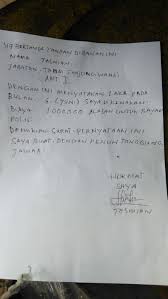 YG BERTANDA TANGAN DIBAWAH INI
NAMA YASMIAN
JABATAN TAMAN TANJUNG WANGI
ANT I.
DENGAN INI MENYATAKAN PADA
BULAN 6 (JUNI) SAYA DIKENAKAN
BIAYA 1000000 ALASAN UNTUK BAYAR
POLIS
DEMIKIAN SURAT PERNYATAAN INI
SAYA BUAT DENGAN PENUH TANGGUNG
JAWAB
HORMAT
SAYA
YASMIAN